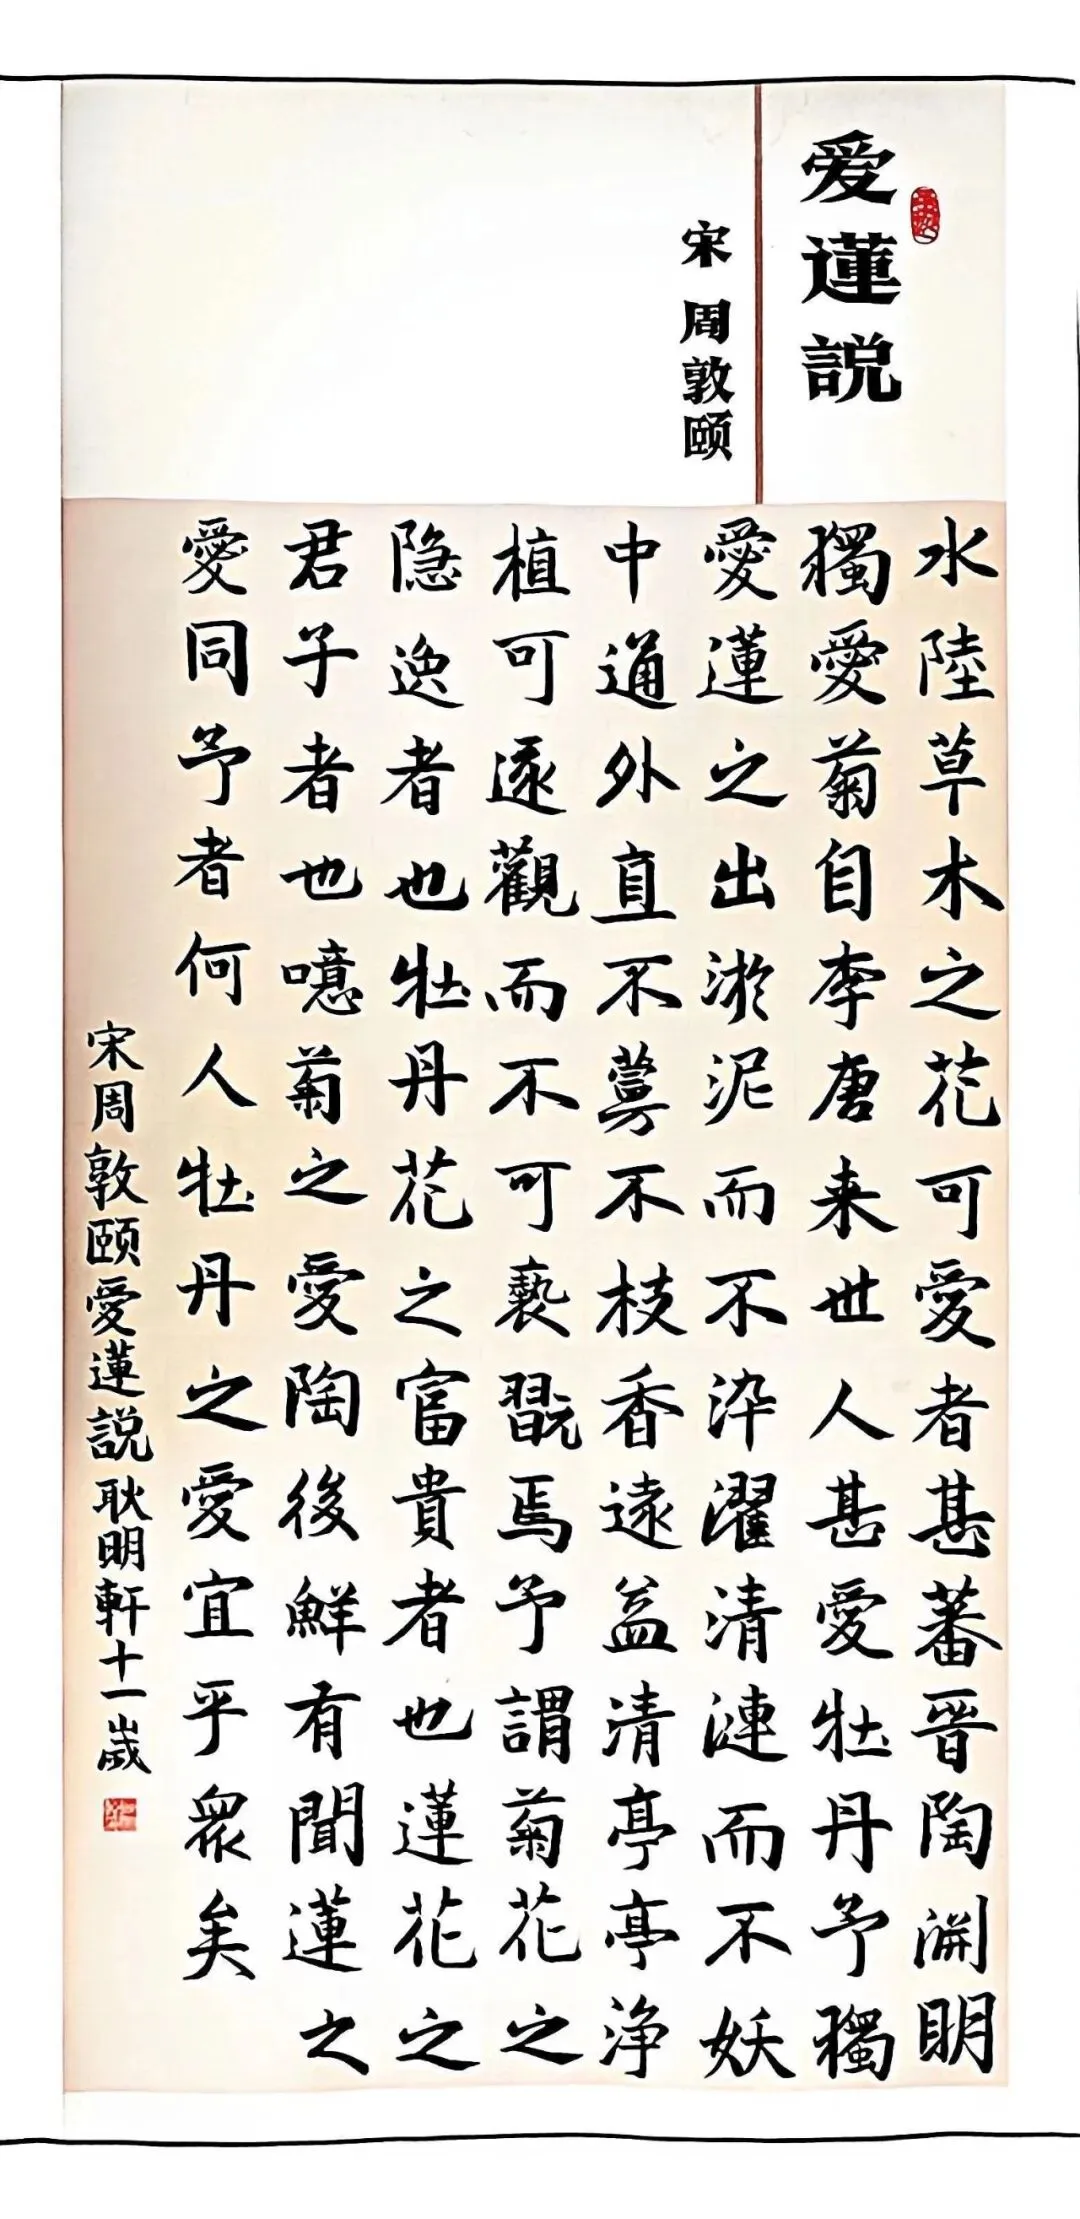 爱蓮説
宋 周敦颐
水陸草木之花可愛者甚蕃晉陶淵明
獨愛菊自李唐来世人甚愛牡丹予獨
愛蓮之出淤泥而不染濯清漣而不妖
中通外直不蔓不枝香遠益清亭亭净
植可遂觀而不可褻翫焉予謂菊花之
隐逸者也牡丹花之富貴者也蓮花之
君子者也噫菊之愛陶後鮮有聞蓮之
愛同予者何人牡丹之愛宜乎衆矣
宋周敦颐愛蓮説耿明軒十一歲